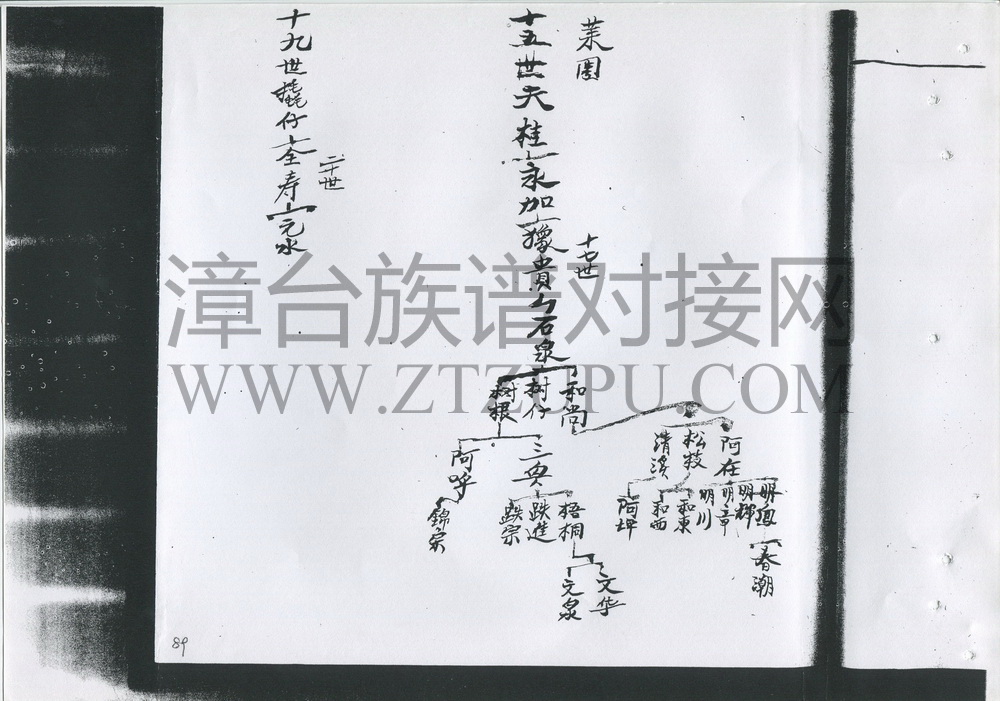 菜園
十五世天桂永加㺟貴石泉
十七世
和尚
树仔
树根
阿在
松枝
清溪
三興
阿呼
明
明輝
明章
明川
和東
和西
阿坪
梧桐
跌進
跌宗
錦宗
春潮
文华
元泉
十九世撓仔全寿元水
二十世
漳台族谱对接网
WWW.ZTZUPU.COM
89